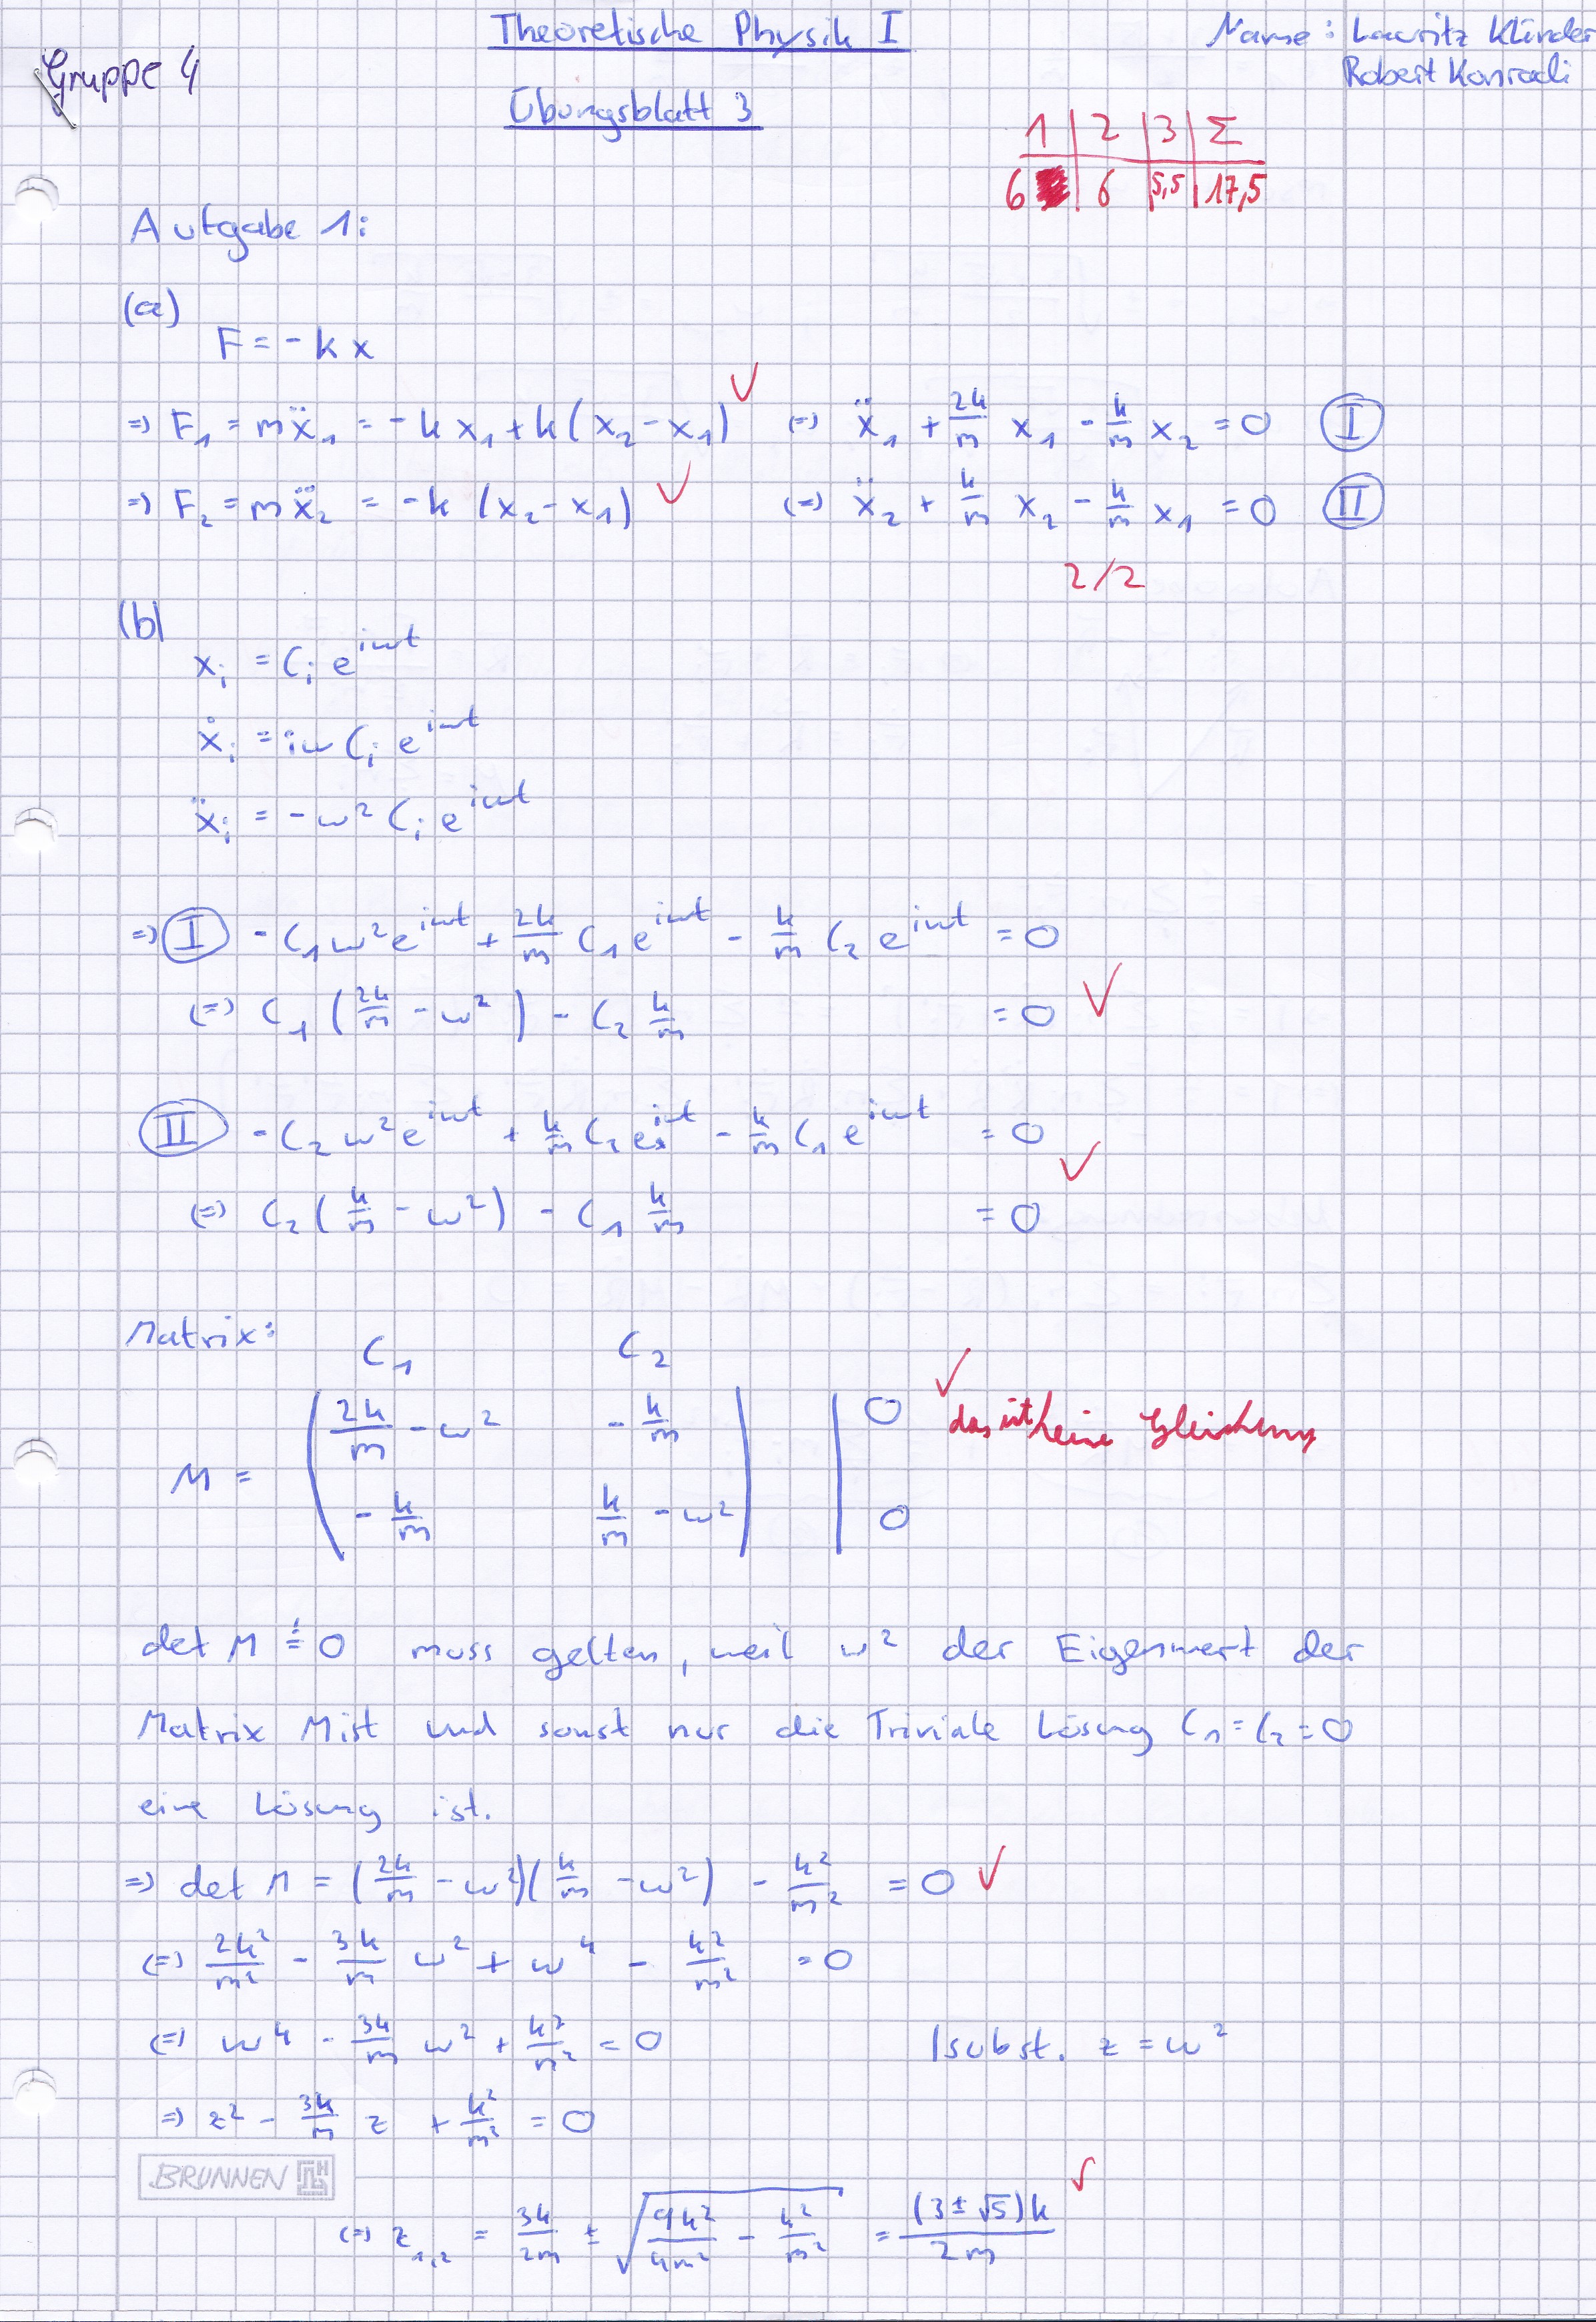 Theoretische Physik I
Name: Lauritz Klünder
Robert Konradi
Gruppe 4
Übungsblatt 3
1 | 2 | 3 | Σ
6 | 6 | 5,5 | 17,5
Aufgabe 1:
(a)
F = - k x
⇒ F₁ = mẍ₁ = -k x₁ + k(x₂ - x₁) ✓ (=) ẍ₁ + 2k/m x₁ - k/m x₂ = 0 Ⅰ
⇒ F₂ = mẍ₂ = -k (x₂ - x₁) ✓ (=) ẍ₂ + k/m x₂ - k/m x₁ = 0 Ⅱ
2/2
(b)
xᵢ = Cᵢ e^{iωt}
ẋᵢ = iω Cᵢ e^{iωt}
ẍᵢ = -ω² Cᵢ e^{iωt}
⇒ Ⅰ - C₁ω²e^{iωt} + 2k/m C₁ e^{iωt} - k/m C₂ e^{iωt} = 0
(=) C₁ (2k/m - ω²) - C₂ k/m = 0 ✓
Ⅱ - C₂ ω²e^{iωt} + k/m C₂ e^{iωt} - k/m C₁ e^{iωt} = 0
(=) C₂ (k/m - ω²) - C₁ k/m = 0 ✓
Matrix:
C₁ C₂
M = ( 2k/m - ω² - k/m | 0 ✓ das ist keine Gleichung
- k/m k/m - ω² ) | 0
det M != 0 muss gelten, weil ω² der Eigenwert der
Matrix M ist und sonst nur die Triviale Lösung C₁ = C₂ = 0
eine Lösung ist.
⇒ det M = (2k/m - ω²)(k/m - ω²) - k²/m² = 0 ✓
(=) 2k²/m² - 3k/m ω² + ω⁴ - k²/m² = 0
(=) ω⁴ - 3k/m ω² + k²/m² = 0 |subst. z = ω²
⇒ z² - 3k/m z + k²/m² = 0
BRUNNEN
(=) z₁,₂ = 3k/2m ± √(9k²/4m² - k²/m²) = (3 ± √5)k/2m ✓